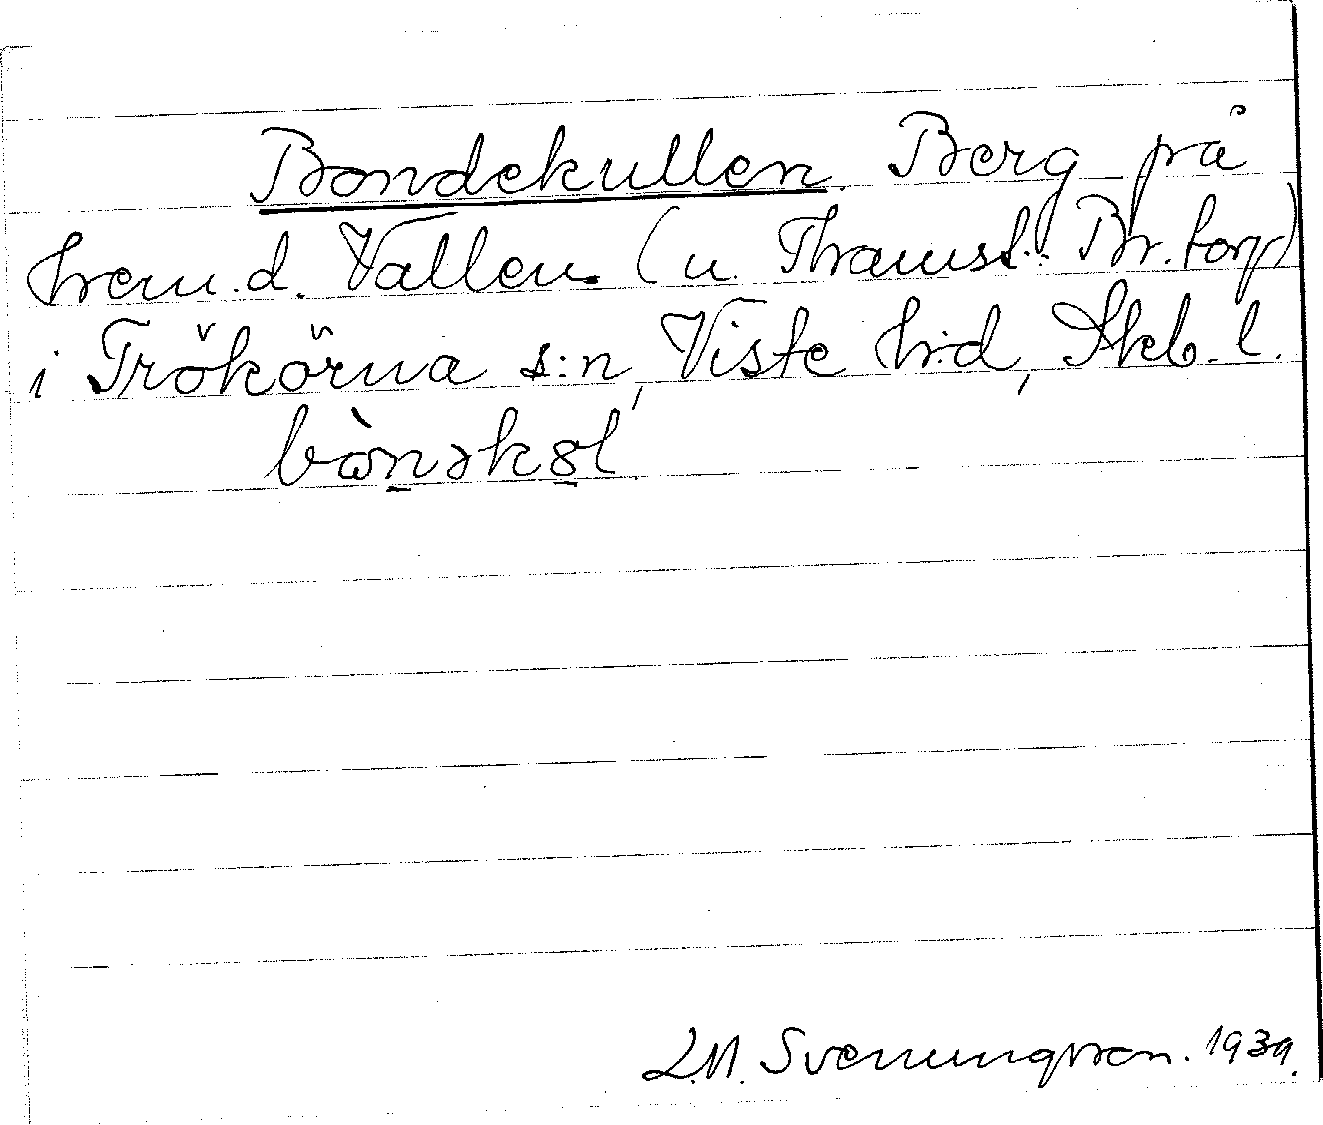 Bondekullen. Berg på
hem.d. Vallen (u. Thamst. Br. torp)
i Trökörna s:n, Viste hrd, Skb. l.
bònəkɷl
L.M. Svenungsson. 1939.